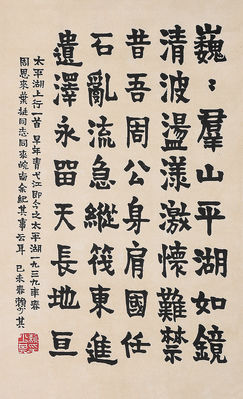 巍〻羣山平湖如鏡
清波盪漾激懷難禁
昔吾周公身肩國任
石亂流急縱筏東進
遺澤永留天長地亘
太平湖上行一首 早年青弋江即今之太平湖一九三九年春
周恩來葉挺同志同來皖南余紀其事云耳 己未春 賴少其